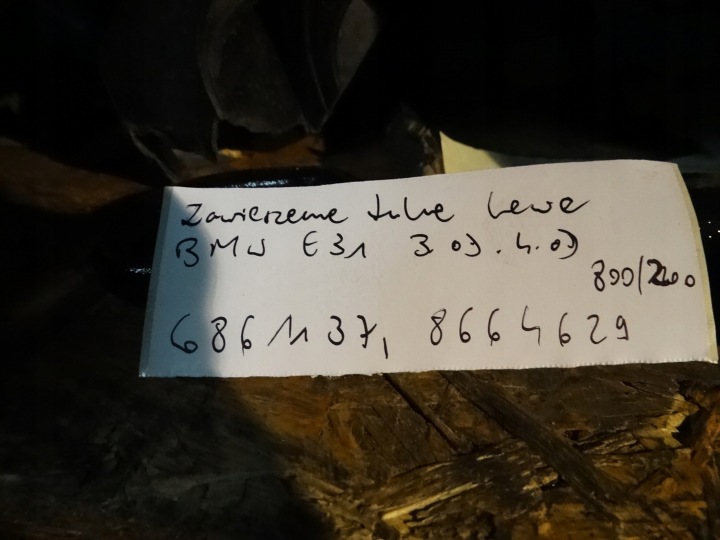 Zawieszenie tylne Lewe
BMW E31 3.0) . 4.0)
800/2400
6861137, 8664629